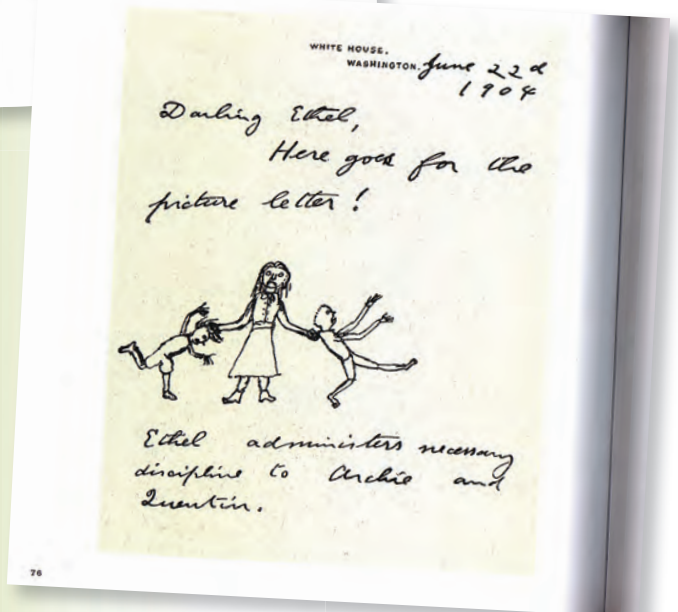 WHITE HOUSE.
WASHINGTON. June 22d
1904
Darling Ethel,
Here goes for the
picture letter!
Ethel administers necessary
discipline to Archie and
Quentin.
76